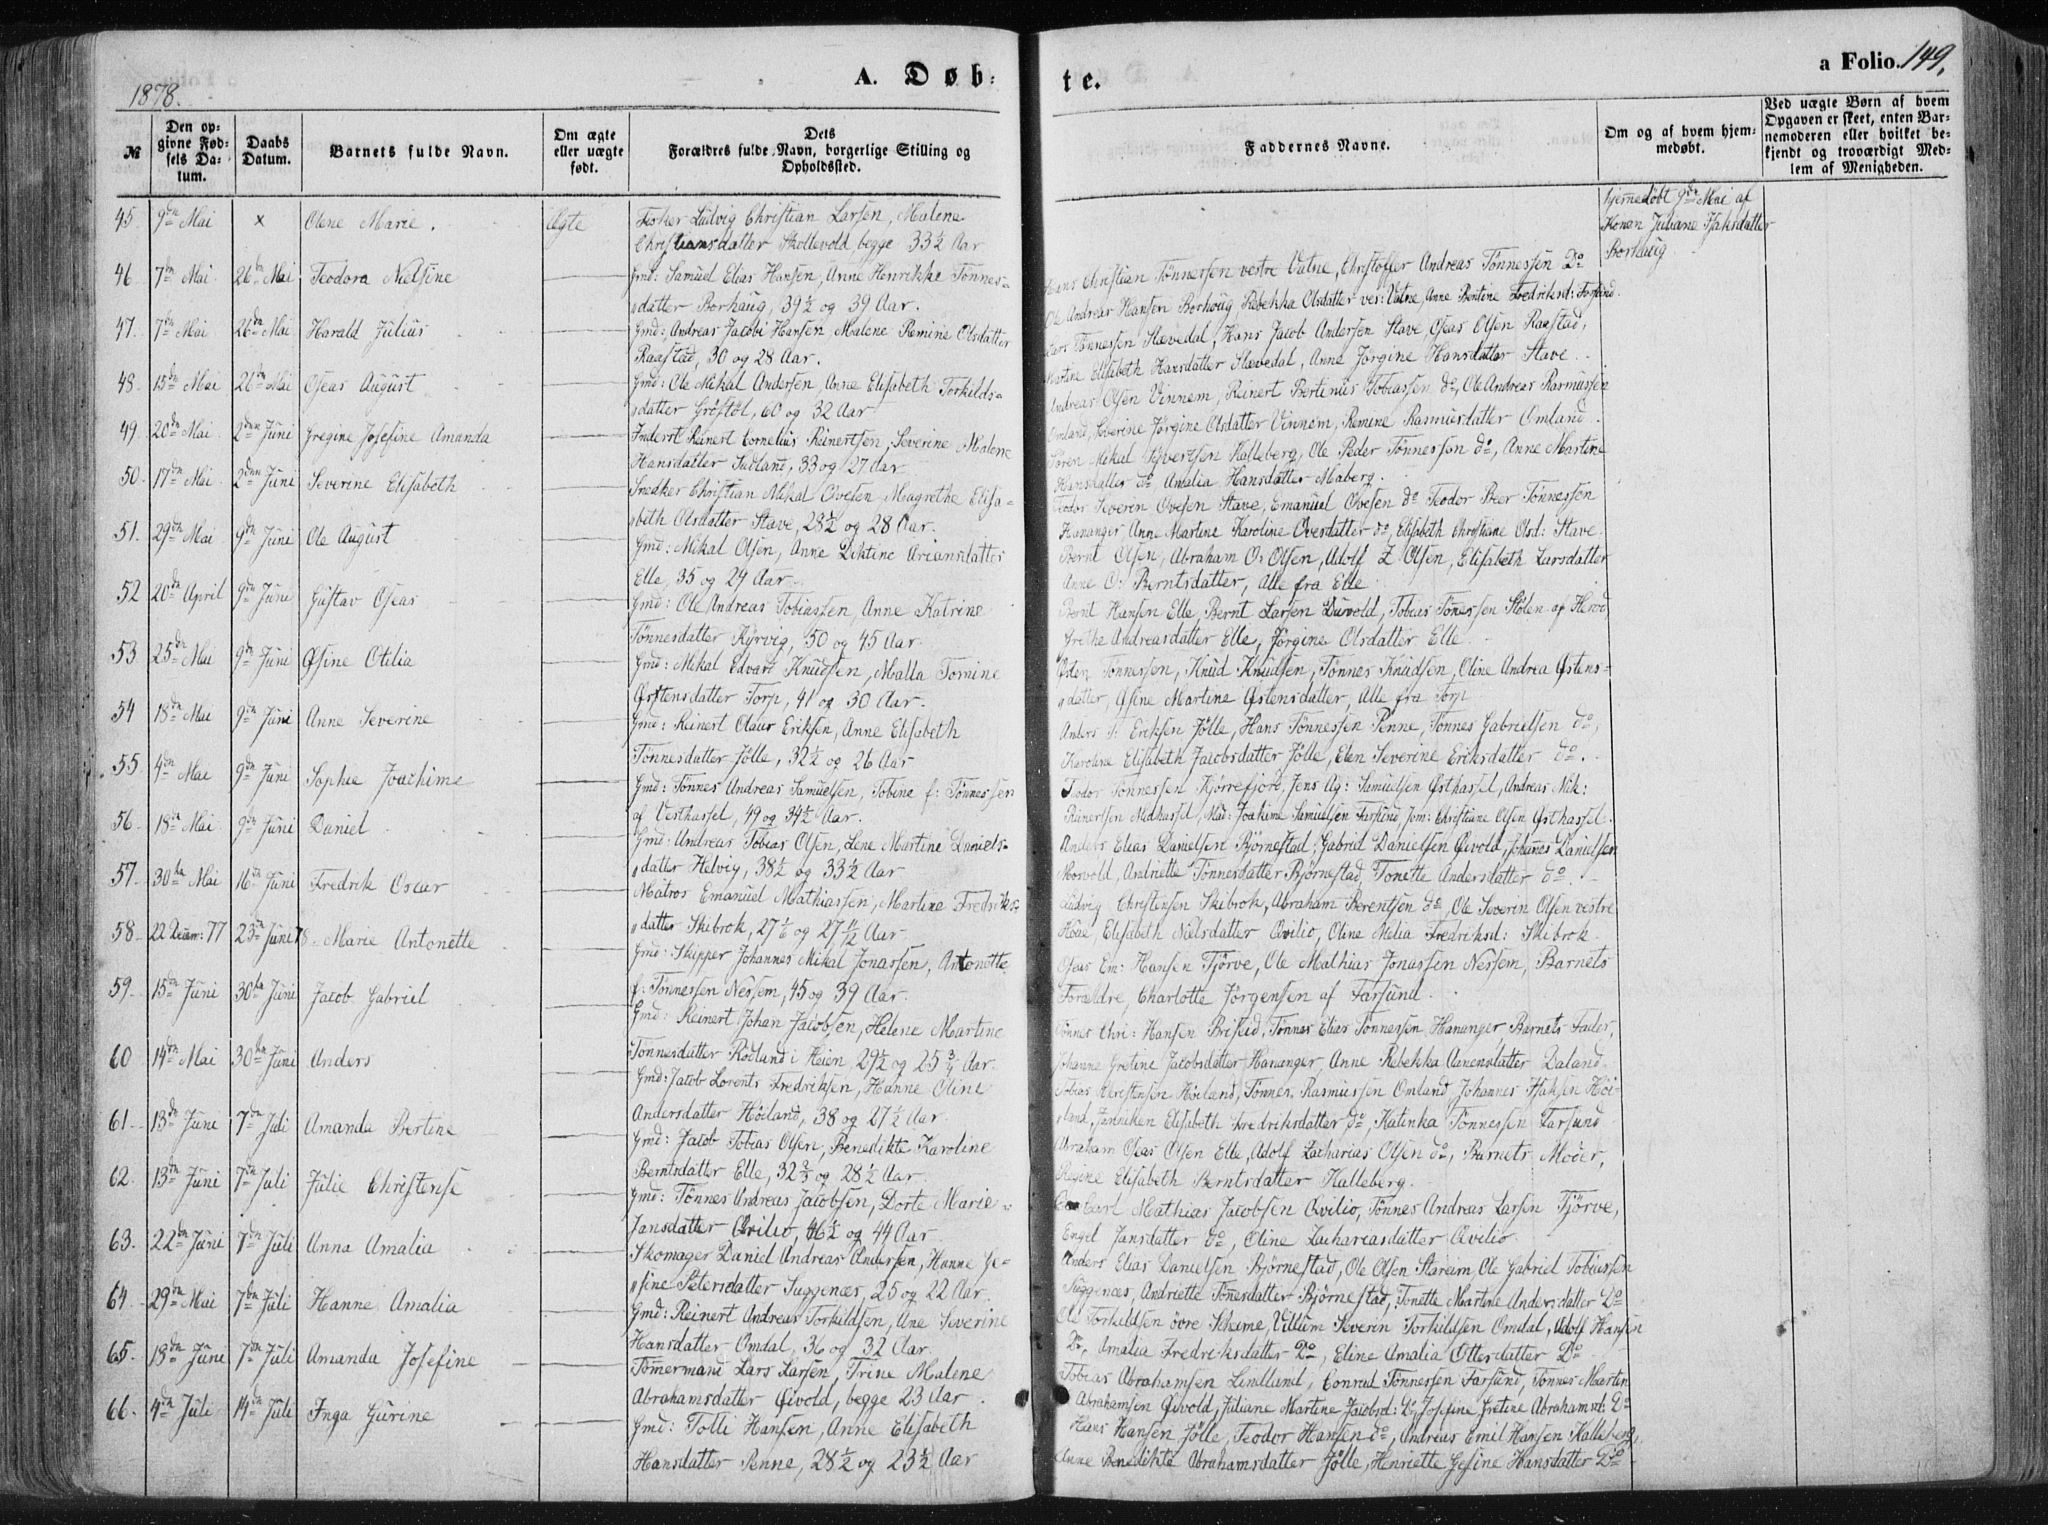 A. Døb=
te.
a Folio 149.
1878.
№
Den opgivne Fødsels Datum.
Daabs Datum.
Barnets fulde Navn.
Om ægte eller uægte født.
Dets Forældres fulde Navn, borgerlige Stilling og Opholdssted.
Faddernes Navne.
Om og af hvem hjemmedøbt.
Ved uægte Børn af hvem Opgaven er skeet, enten Barnemoderen eller hvilket bekjendt og troværdigt Medlem af Menigheden.
45 9de Mai x Olene Marie. Ægte Fisker Ludvig Christian Larsen, Malene
Christiansdatter Skollevold begge 33½ Aar
hjemedöbt 9de Mai af
Konen Juliane Isaksdatter
Borhaug
46 7de Mai 26de Mai Teodora Nielsine Gmd: Samuel Elias Hansen, Anne Henrikke Tönnes-
datter Borhaug, 39½ og 39 Aar.
Hans Christian Tönnessen vestre Vatne, Christoffer Andreas Tönnessen Do
Ole Andreas Hansen Borhoug Rebekka Olsdatter ves: Vatne, Anne Bentine Fredriksd: Farsund.
47. 7de Mai 26de Mai Harald Julius Gmd: Andreas Jacobi Hansen Malene Remine Olsdatter
Raastad, 30 og 28 Aar.
Lars Tönnessen Slævedal, Hans Jacob Andersen Stave, Oseas Olsen Raastad,
Martine Elisabeth Hansdatter Slævedal, Anne Jörgine Hansdatter Stave.
48. 15de Mai 26de Mai Oseas August Gmd: Ole Mikal Andersen, Anne Elisabeth Torkilds-
datter Gröstöl, 60 og 32 Aar
Andreas Olsen Vinnem, Reinert Bertinius Tobiassen do, Ole Andreas Rasmussen
Omland, Severine Jörgine Olsdatter Vinnem, Remine Rasmusdatter Omland.
49. 20de Mai 2den Juni Gregine Josefine Amanda Inderst Reinert Cornelius Reinertsen, Severine Malene
Hansdatter Sudland, 33 og 27 Aar
Sören Mikal Syvertsen Kalleberg, Ole Peder Tönnessen do, Anne Martine
Hansdatter do Amalia Hansdatter Maberg.
50. 17de Mai 2den Juni Severine Elisabeth Snedker Christian Mikal Ovesen Magrethe Elisa-
beth Olsdatter Stave, 28½ og 28 Aar.
Teodor Severin Ovesen Stave, Emanuel Ovesen do Teodor Peer Tönnessen
Hananger Anne Martine Karoline Ovesdatter do, Elisabeth Christiane Olsd: Stave.
51. 29de Mai 9de Juni Ole August Gmd: Mikal Olsen, Anne Diktine Ariansdatter
Elle, 35 og 29 Aar.
Bernt Olsen, Abraham O: Olsen, Adolf Z Olsen, Elisabeth Larsdatter
Anne O: Berntsdatter, Alle fra Elle
52 20de April 9de Juni Gustav Oseas Gmd: Ole Andreas Tobiassen, Anne Katrine
Tönnesdatter Kjrvig, 50 og 45 Aar
Bernt Hansen Elle, Bernt Larsen Duvold, Tobias Tönessen Stölen af Herod
Grethe Andreasdatter Elle, Jörgine Olsdatter Elle.
53 25de Mai 9de Juni Øsine Otilia Gmd: Mikal Edvart Knudsen, Malla Tomine
Østensdatter Torp, 41 og 30 Aar.
Østen Tönnessen, Knud Knudsen, Tönnes Knudsen, Oline Andrea Østens-
datter, Øsine Martine Østensdatter, Alle fra Torp
54 18de Mai 9de Juni Anne Severine Gmd: Reinert Olaus Eriksen, Anne Elisabeth
Tönnesdatter Jölle, 32½ og 26 Aar
Anders S: Eriksen Jölle, Hans Tönnessen Penne, Tönnes Gabrielsen do,
Karoline Elisabeth Jacobsdatter Jölle, Elen Severine Eriksdatter do.
55. 4de Mai 9de Juni Sophie Joachime Gmd: Tönnes Andreas Samuelsen, Tobine f: Tönnessen
af Vesthassel, 49 og 34½ Aar.
Teodor Tönnessen Kjörrefjord, Jens Ag: Samuelsen Østhassel, Andreas Nik:
Reinertsen Midhassel, Mad: Joakime Samuelsen Farsund Jom: Christiane Olsen Østhassel.
56. 18de Mai 9de Juni Daniel Gmd: Andreas Tobias Olsen, Lene Martine Daniels-
datter Helvig, 38½ og 33½ Aar
Anders Elias Danielsen Bjørnestad, Gabriel Danielsen Øivold, Johannes Danielsen
Morvold, Andriette Tönnesdatter Bjørnestad, Tonette Andersdatter do.
57. 30te Mai 16de Juni Fredrik Oscar Matros Emanuel Mathiassen, Martine Fredriks-
datter Skibrok, 27 1/6 og 27 11/12 Aar
Ludvig Christensen Skibrok, Abraham Berentsen do, Ole Severin Olsen vestre
Höve, Elisabeth Nielsdatter Ovilio, Oline Melia Fredriksd: Skibrok
58 22 Decem: 77 23de Juni 78 Marie Antonette Gmd: Skipper Johannes Mikal Jonassen, Antonette
f: Tönnessen Nessem, 45 og 39 Aar.
Oseas Em: Hansen Tjörve, Ole Mathias Jonassen Nessem, Barnets
Forældre, Charlotte Jörgensen af Farsund.
59. 15de Juni 30te Juni Jacob Gabriel Gmd: Reinert Johan Jacobsen, Helene Martine
Tönnesdatter Rödland i Heien, 29½ og 25¾ Aar.
Tönnes Chri: Hansen Briseid, Tönnes Elias Tönnessen Hananger, Barnets Fader,
Johanne Gretine Jacobsdatter Hananger, Anne Rebekka Aanensdatter Daland.
60 14de Mai 30te Juni Anders Gmd: Jacob Lorents Fredriksen, Hanne Oline
Andersdatter Höiland, 38 og 27½ Aar.
Tobias Christensen Höiland, Tönnes Rasmussen Omland, Johannes Isaksen Höi
land, Janniken Elisabeth Fredriksdatter do, Katinka Tönnessen Farsund
61. 13de Juni 7de Juli Amanda Bertine Gmd: Jacob Tobias Olsen, Benedikte Karoline
Berntsdatter Elle, 32⅔ og 28½ Aar.
Abraham Oseas Olsen Elle, Adolf Zacharias Olsen do, Barnets Moder,
Regine Elisabeth Berntsdatter Kalleberg.
62. 13de Juni 7de Juli Julie Christense Gmd: Tönnes Andreas Jacobsen, Dorte Marie
Jansdatter Ovilio, 46½ og 44 Aar
Carl Mathias Jacobsen Ovilio, Tönnes Andreas Larsen Tjörve,
Engel Jansdatter do, Oline Zachariasdatter Ovilio
63. 22de Juni 7de Juli Anna Amalia Skomager Daniel Andreas Andersen, Hanne Ge-
sine Petersdatter Suggenæs, 25 og 22 Aar.
Anders Elias Danielsen Bjørnestad, Ole Olsen Stareim, Ole Gabriel Tobiassen
Suggenæs, Andriette Tönesdatter Bjørnestad, Tonette Martine Andersdatter Do
64. 29de Mai 7de Juli Hanne Amalia Gmd: Reinert Andreas Torkildsen, Ane Severine
Hansdatter Omdal, 36 og 32 Aar.
Ole Torkildsen övre Skeime, Villum Severin Torkildsen Omdal, Adolf Hansen
Do, Amalia Fredriksdatter Do, Eline Amalia Ottersdatter Do
65. 13de Juni 7de Juli Amanda Josefine Tömermand Lars Larsen, Trine Malene
Abrahamsdatter Øivold, begge 23 Aar
Tobias Abrahamsen Lindland, Conrad Tönnessen Farsund, Tönnes Martin
Abrahamsen Øivold, Juliane Martine Jacobsd: Do, Josefine Gretine Abrahamsd: Do
66. 4de Juli 14de Juli Inga Gurine Gmd: Tolli Hansen, Anne Elisabeth
Hansdatter Penne, 28½ og 23½ Aar
Hans Hansen Jölle, Teodor Hansen do, Andreas Emil Hansen Kalleberg,
Anne Benedikte Abrahamsdatter Jölle, Henriette Gesine Hansdatter Do